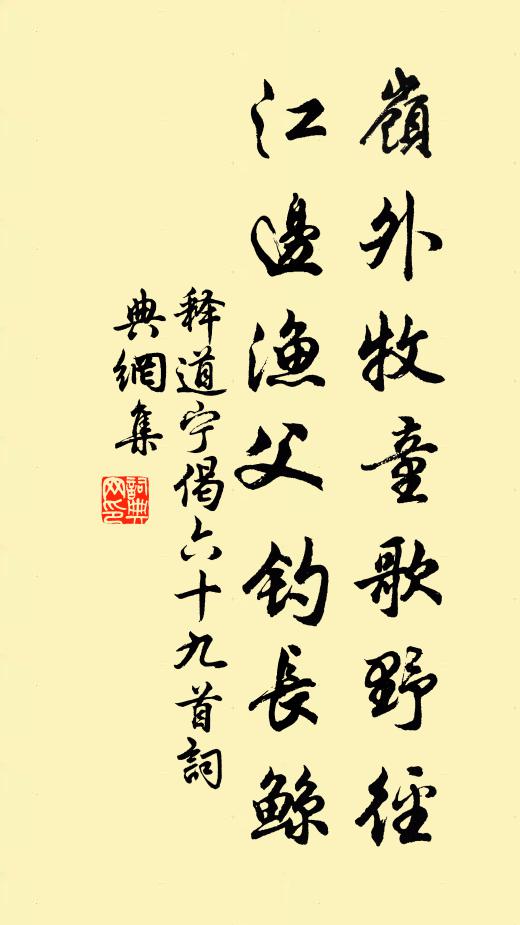 嶺外牧童歌野徑
江邊漁父釣長鯨
释道宁偈六十九首詞
典網集
詞典網印